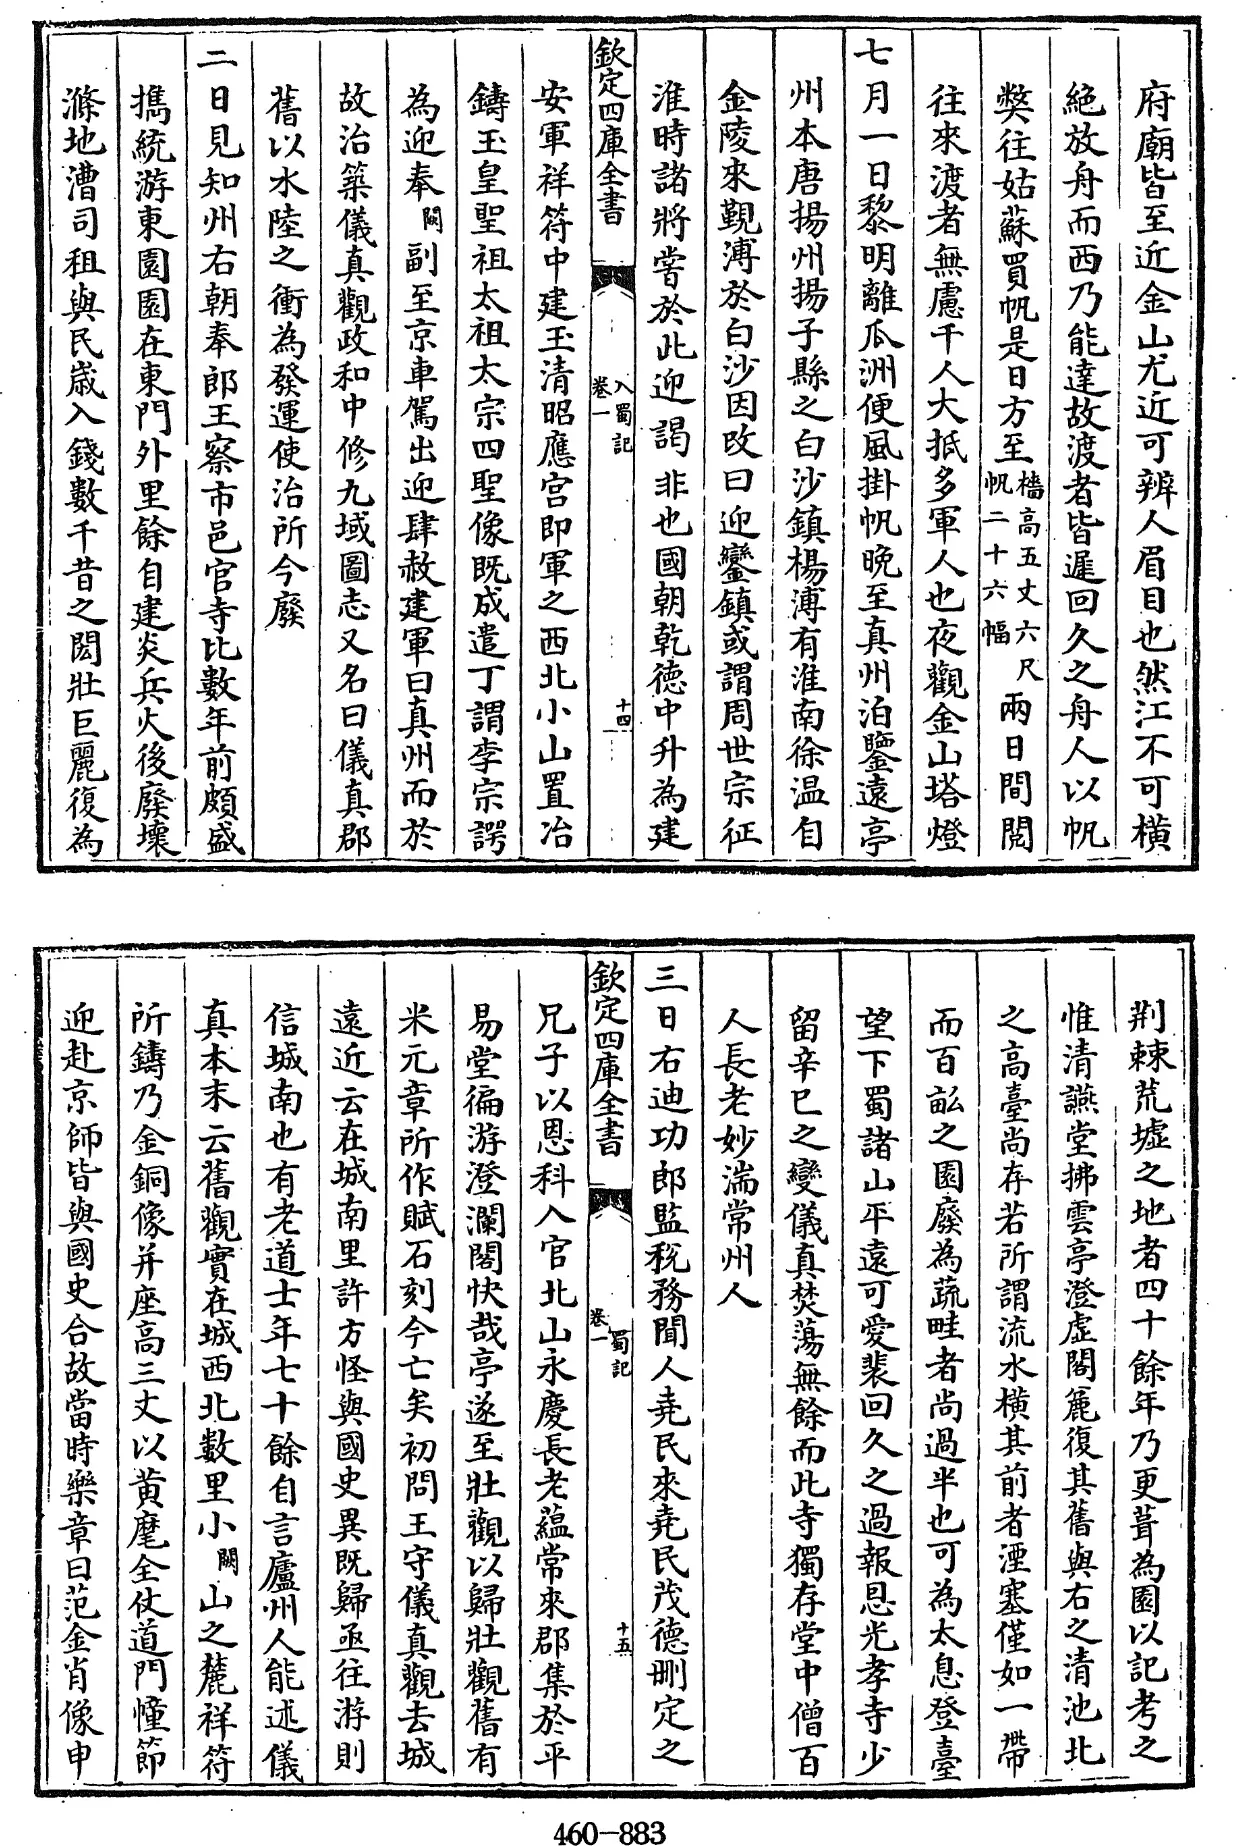 府廟皆至近金山尤近可辨人眉目也然江不可橫
絶放舟而西乃能達故渡者皆遲回久之舟人以帆
弊往姑蘇買帆是日方至檣髙五丈六尺帆二十六幅兩日間閲
往來渡者無慮千人大抵多軍人也夜觀金山塔燈
七月一日黎明離瓜洲便風掛帆晚至真州泊鑒遠亭
州本唐揚州揚子縣之白沙鎮楊溥有淮南徐温自
金陵來覲溥於白沙因改曰迎鑾鎮或謂周世宗征
淮時諸將嘗於此迎謁非也國朝乾徳中升為建
欽定四庫全書
入蜀記
卷一
十四
安軍祥符中建玉清昭應宫即軍之西北小山置冶
鑄玉皇聖祖太祖太宗四聖像既成遣丁謂李宗諤
為迎奉闕副至京車駕出迎肆赦建軍曰真州而於
故治築儀真觀政和中修九域圖志又名曰儀真郡
舊以水陸之衝為發運使治所今廢
二日見知州右朝奉郎王察市邑官寺比數年前頗盛
擕統游東園園在東門外里餘自建炎兵火後廢壞
滌地漕司租與民歳入錢數千昔之閎壯巨麗復為
荆棘荒墟之地者四十餘年乃更葺為園以記考之
惟清讌堂拂雲亭澄虚閣麄復其舊與右之清池北
之高臺尚存若所謂流水橫其前者湮塞僅如一帶
而百畆之園廢為蔬畦者尚過半也可為太息登臺
望下蜀諸山平遠可愛裴回久之過報恩光孝寺少
留辛巳之變儀真焚蕩無餘而此寺獨存堂中僧百
人長老妙湍常州人
三日右迪功郎監税務聞人堯民來堯民茂徳刪定之
欽定四庫全書
蜀記
卷一
十五
兄子以恩科入官北山永慶長老藴常來郡集於平
易堂徧游澄瀾閣快哉亭遂至壯觀以歸壯觀舊有
米元章所作賦石刻今亡矣初問王守儀真觀去城
遠近云在城南里許方怪與國史異既歸亟往游則
信城南也有老道士年七十餘自言廬州人能述儀
真本末云舊觀實在城西北數里小闕山之麓祥符
所鑄乃金銅像并座高三丈以黄麾全仗道門幢節
迎赴京師皆與國史合故當時樂章曰范金肖像申
460-883